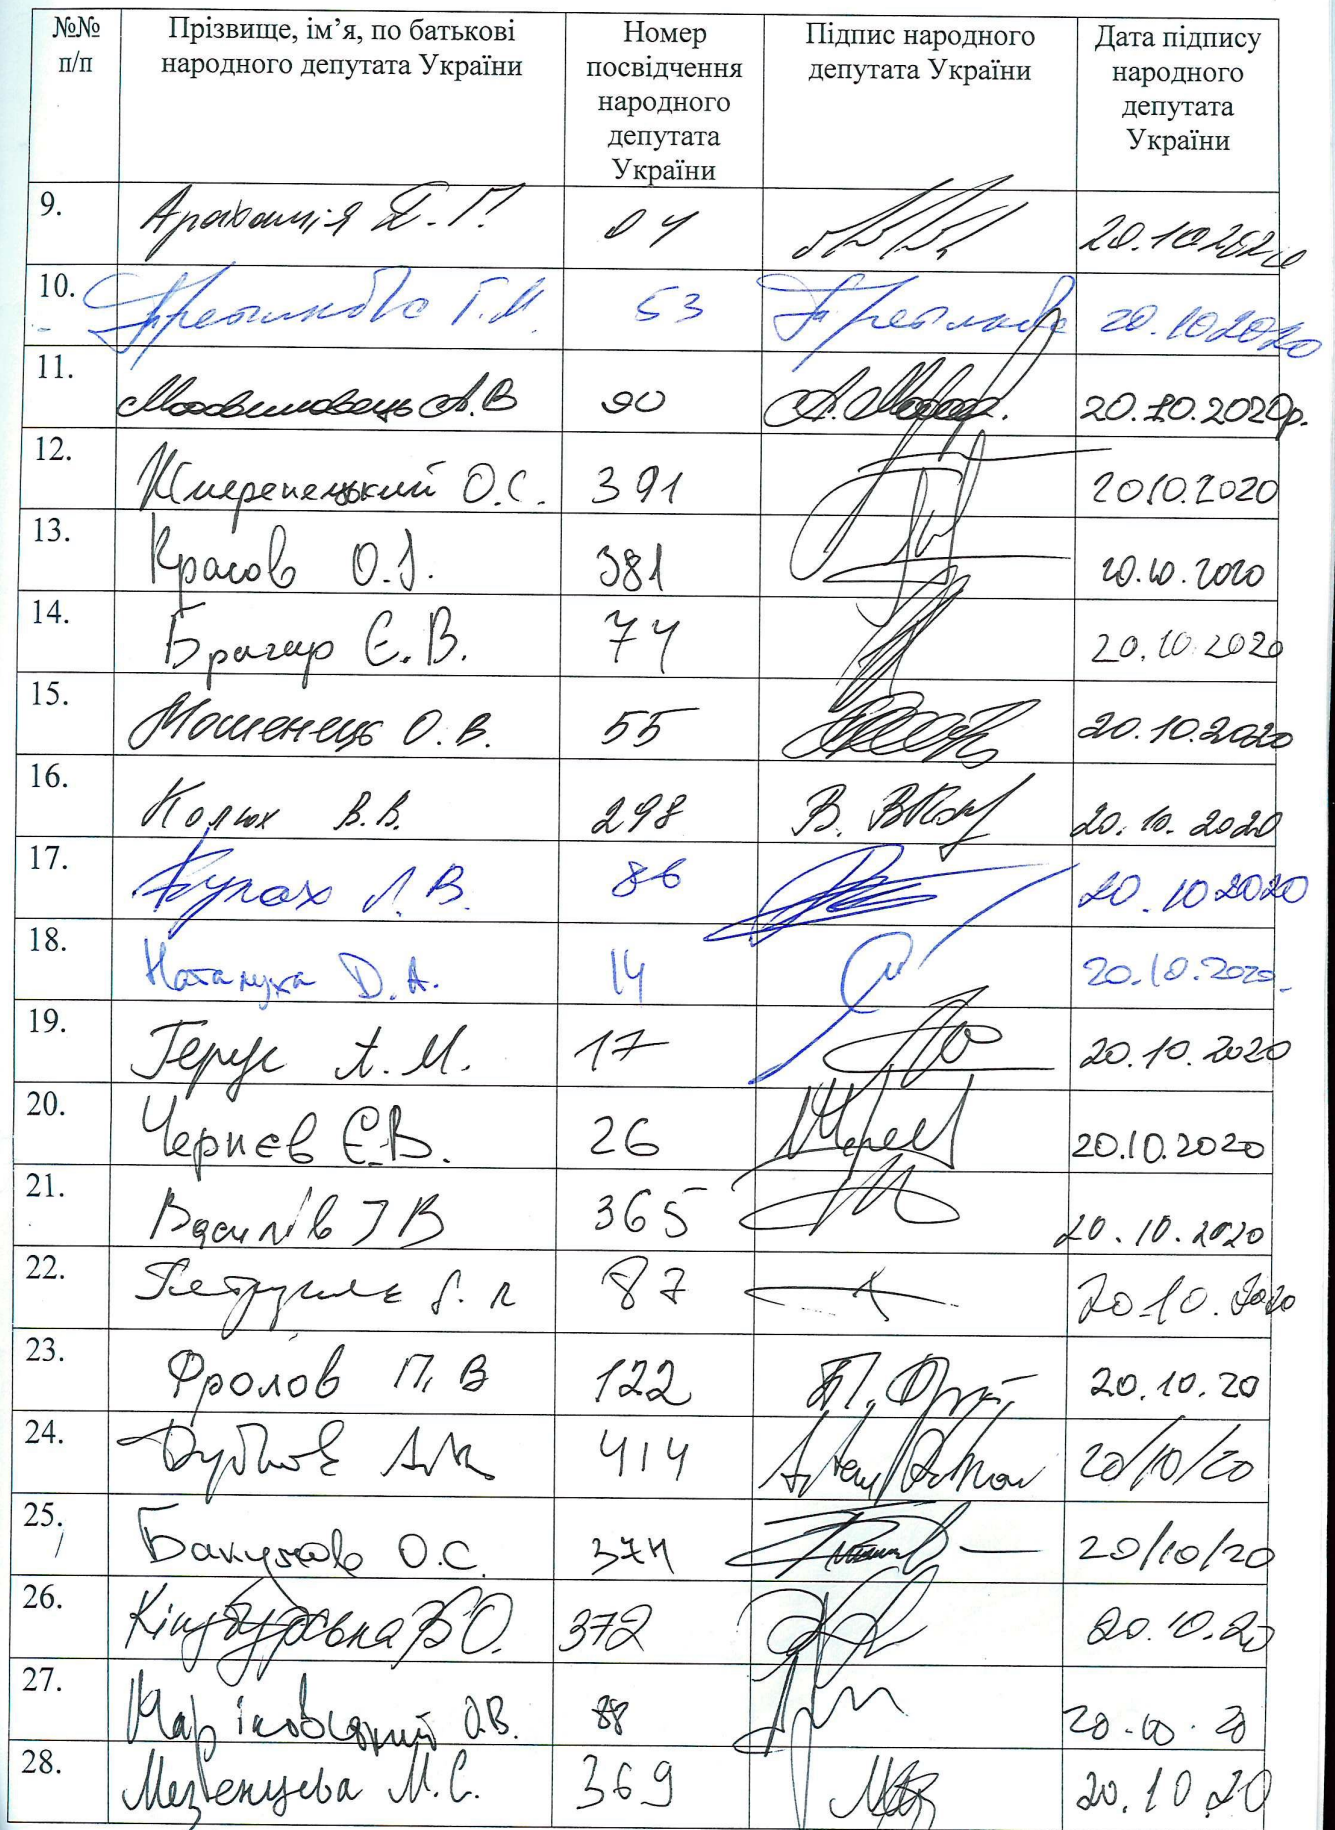 №№ п/п Прізвище, ім’я, по батькові народного депутата України Номер посвідчення народного депутата України Підпис народного депутата України Дата підпису народного депутата України
9. Арахамія Д.Г. 01 20.10.2020
10. Третьякова Г.М. 53 Третьякова 20.10.2020
11. Мотовиловець А.В 90 20.10.2020р.
12. Жмеренецький О.С. 391 20.10.2020
13. Красов О.І. 381 20.10.2020
14. Брагар Є.В. 74 20.10.2020
15. Мошенець О.В. 55 20.10.2020
16. Колюх В.В. 298 20.10.2020
17. Буймістер Л. В. 86 20.10 2020
18. Наталуха Д.А. 14 20.10.2020.
19. Герус А.М. 17 20.10.2020
20. Чернєв Є.В. 26 20.10.2020
21. Василів І В 365 20.10.2020
22. 87 20.10.2020
23. Фролов П. В 122 20.10.20
24. Дубнов А.В 414 20/10/20
25. Бакумов О.С. 374 20/10/20
26. Кінзбурська В.О. 372 20.10.20
27. Мар'яновський О.В. 88 20.10.20
28. Мезенцева М.С. 369 20.10.20